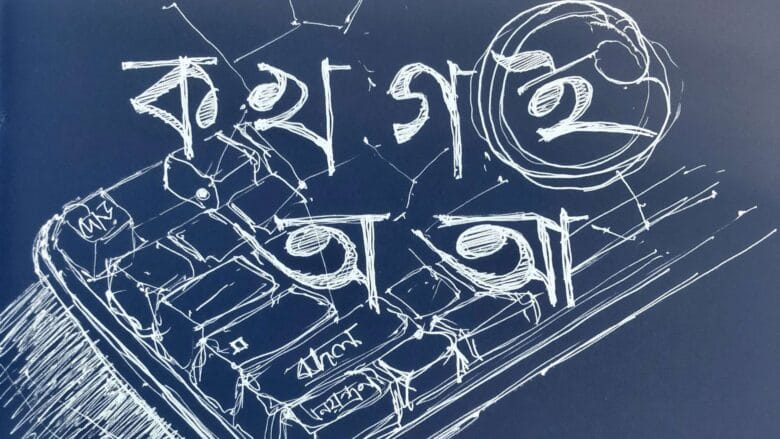 ক খ গ ই
অ আ